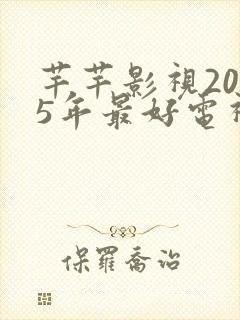 芊芊影視20
5年最好電視
保羅喬治